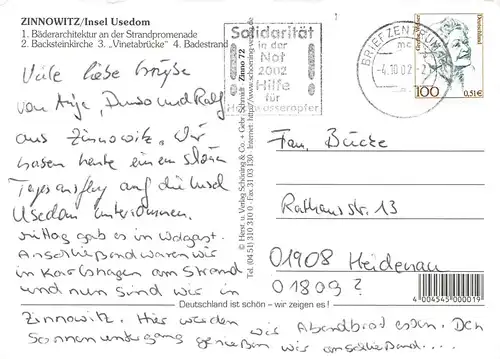 ZINNOWITZ/Insel Usedom
1. Bäderarchitektur an der Strandpromenade
2. Backsteinkirche 3. „Vinetabrücke" 4. Badestrand
Viele liebe Grüße
von Anja, und Ralf
aus Zinnowitz. Wir
haben heute einen schönen
Tagesausflug auf die Insel
Usedom unternommen.
Mittag gab es in Wolgast.
Anschließend waren wir
in Karlshagen am Strand
und nun sind wir in
Zinnowitz. Hier werden wir Abendbrot essen. Den
Sonnenuntergang genießen wir anschließend....
Solidarität
in der
Not
2002
Hilfe
für
Hochwasseropfer
BRIEFZENTRUM
-4.10.02-2
Deutschland
100
0,51€
© Herst. u. Verlag Schöning & Co. + Gebr. Schmidt Zinno 72
Tel. (0451) 310 310 0 · Fax 31 03 130 · Internet http://www.schoening-verlag.de
Fam. Bücke
Rathausstr. 13
01908 Heidenau
01809?
Deutschland ist schön – wir zeigen es!
4 004545 000019